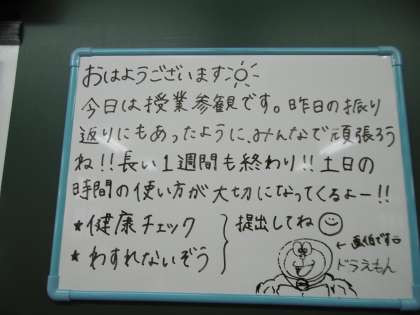 おはようございます
今日は授業参観です。昨日の振り
返りにもあったように、みんなで頑張ろう
ね!!長い1週間も終わり!!土日の
時間の使い方が大切になってくるよー!!
★健康チェック
★わすれないぞう
提出してね
←画伯です
ドラえもん